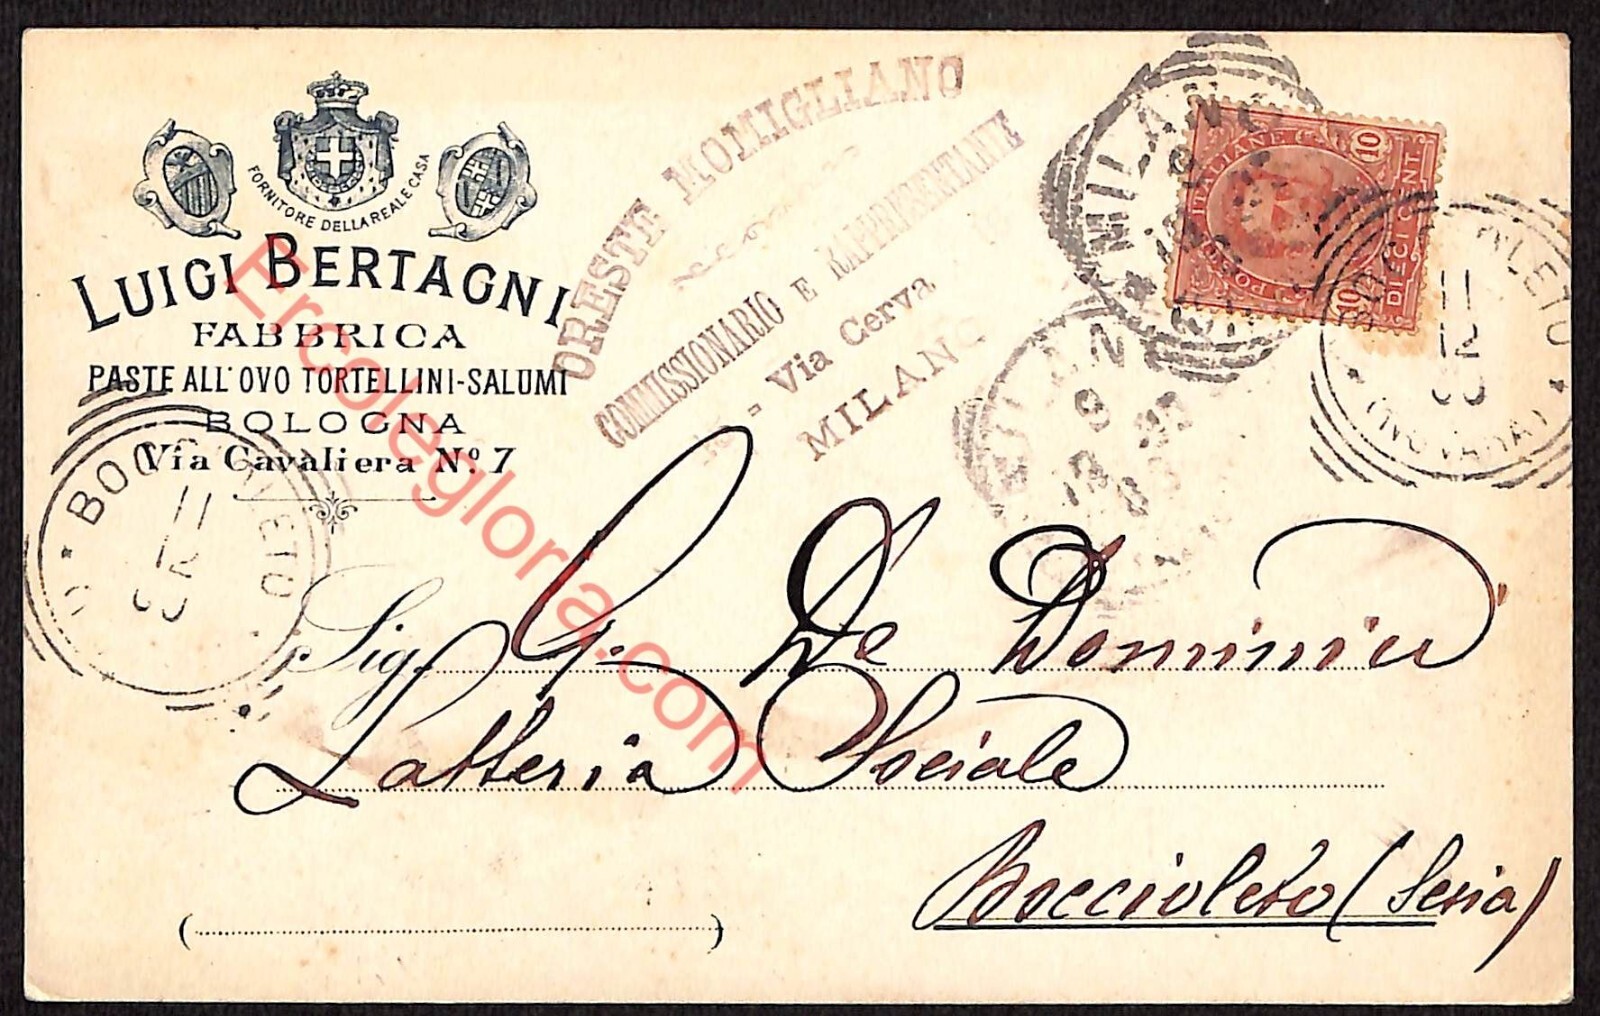 FORNITORE DELLA REALE CASA
LUIGI BERTAGNI
FABBRICA
PASTE ALL'OVO TORTELLINI-SALUMI
BOLOGNA
Via Cavaliera Nº 7
ORESTE MOMIGLIANO
COMMISSIONARIO E RAPPRESENTANTE
Via Cerva
MILANO
MILANO
POSTE ITALIANE
10
DIECI CENT.
10
MILANO
BOCCIOLETO
11
12
(NOVARA)
BOCCIOLETO
11
12
Sig. G. De Dominici
Latteria Sociale
Boccioleto (Sesia)
Ercolegloria.com